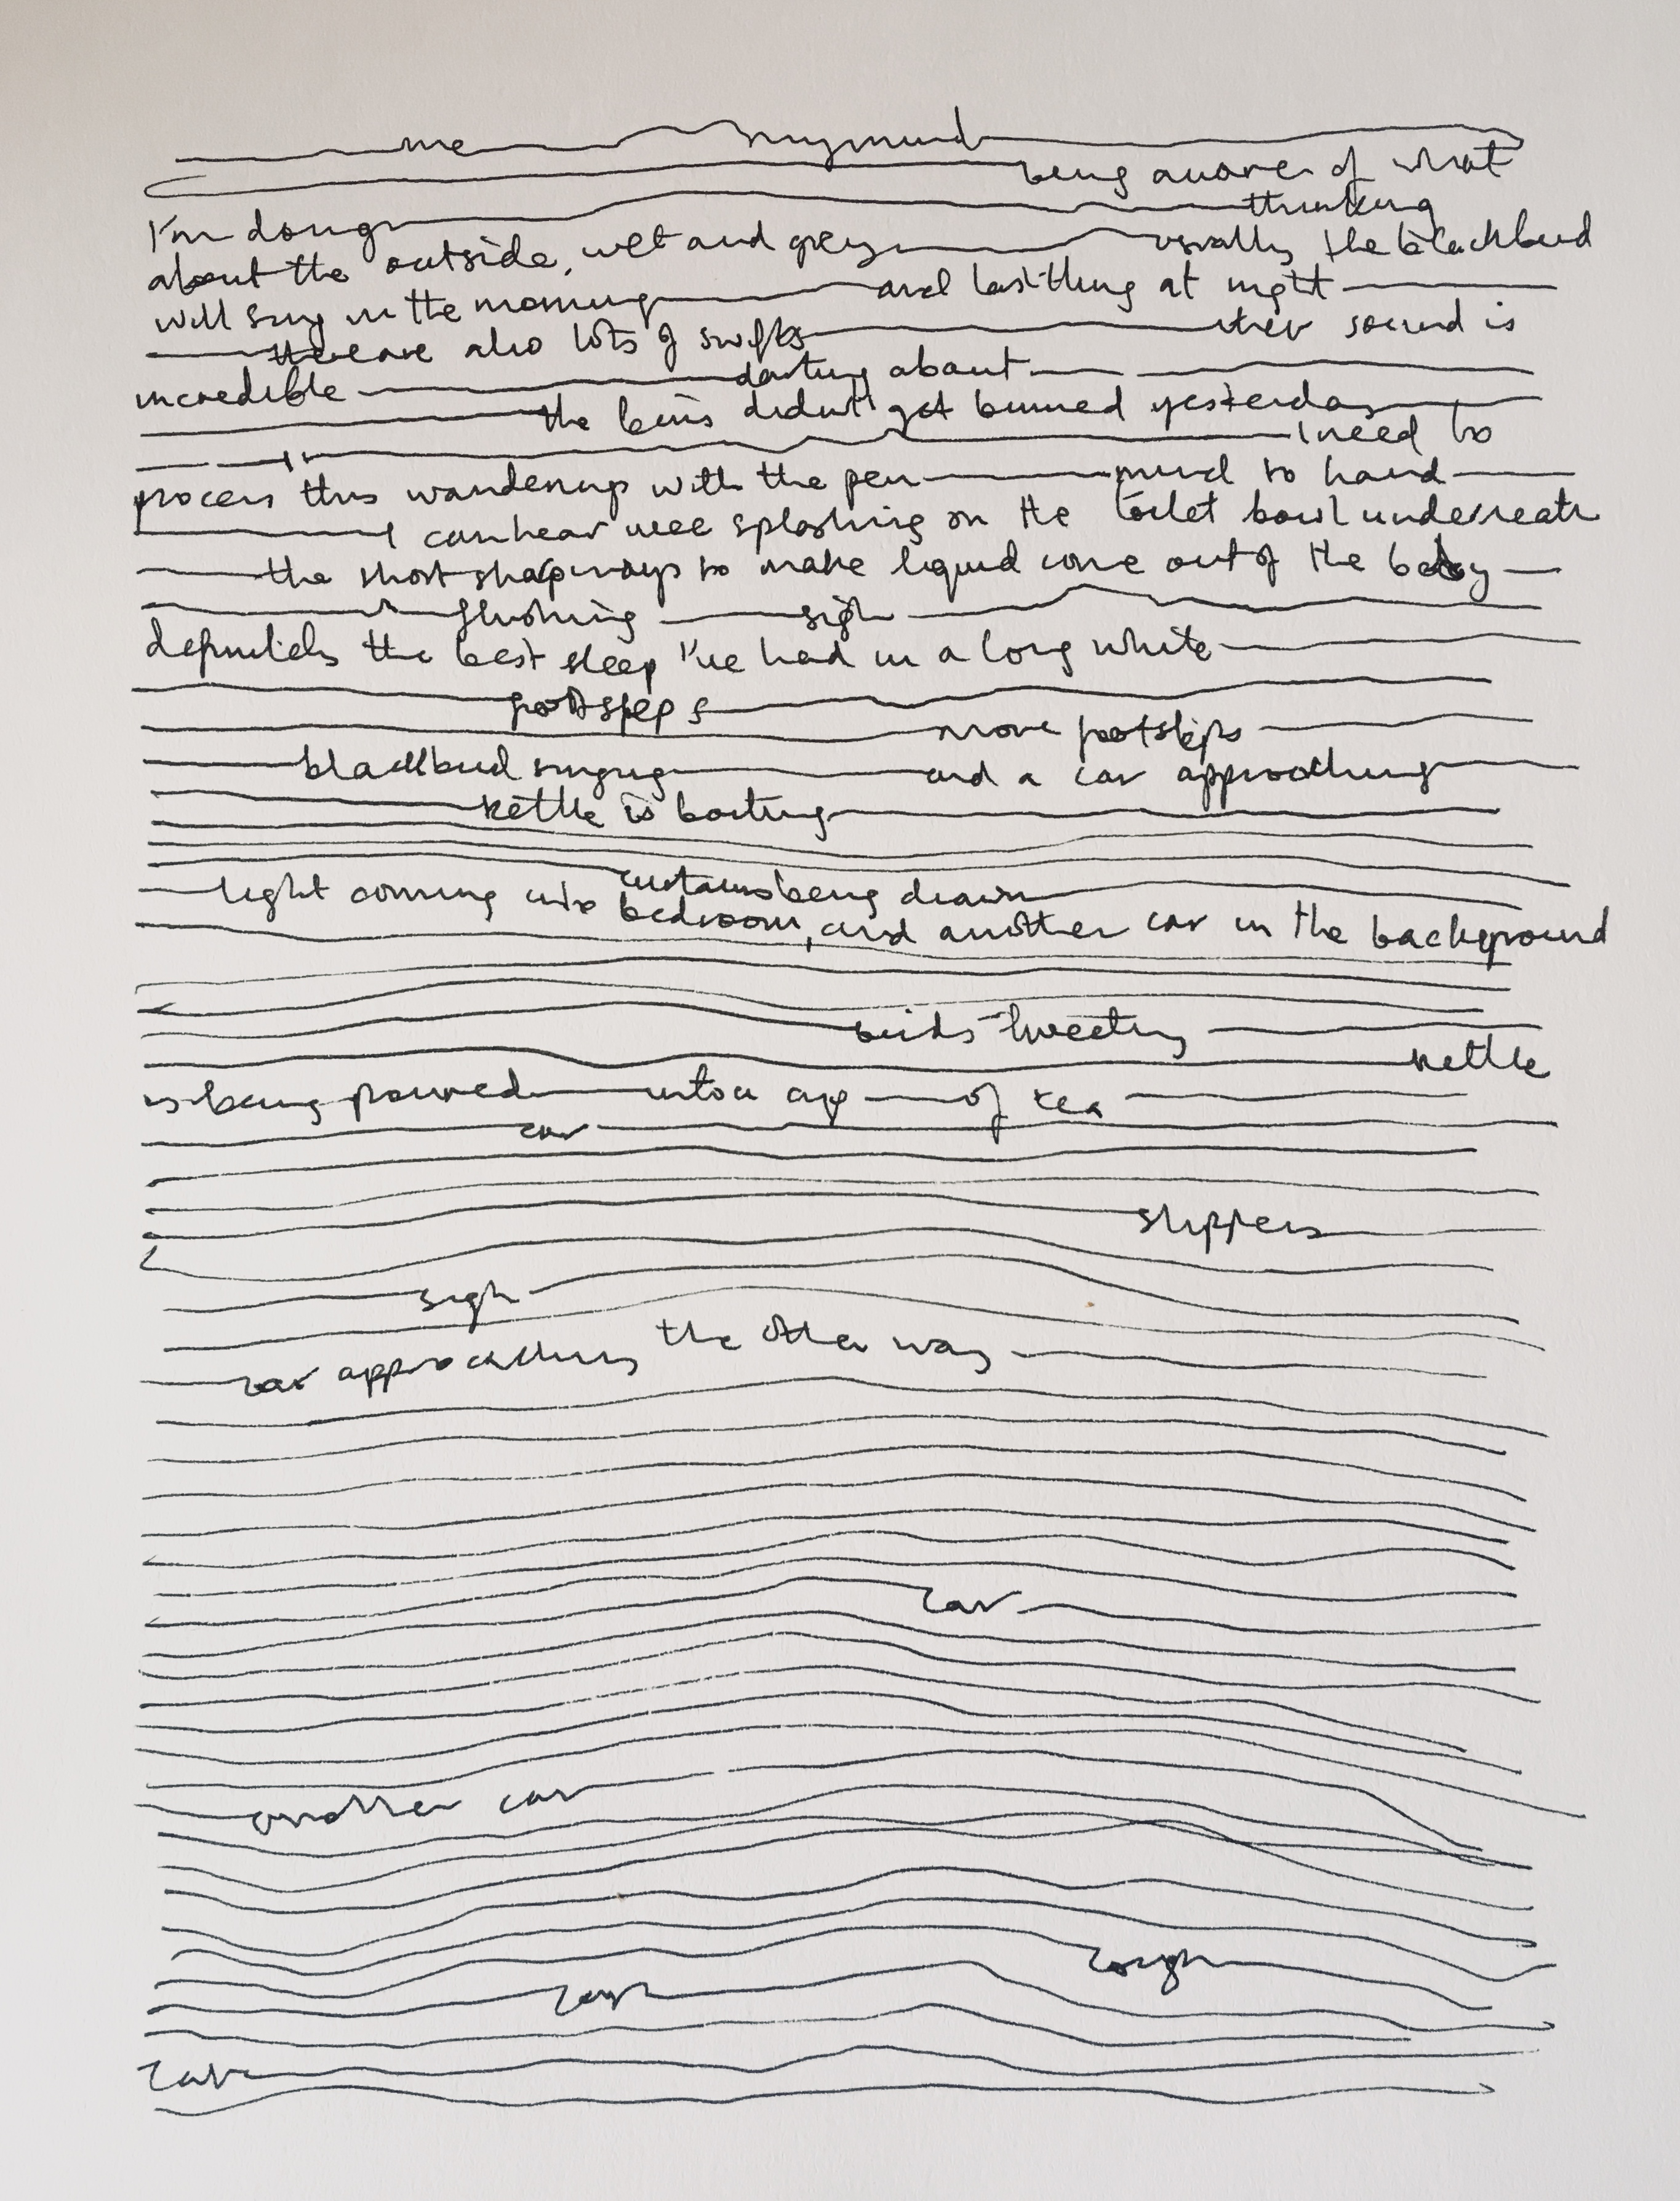 me my mind
being aware of what
I'm doing thinking
about the outside, wet and grey usually the blackbird
will sing in the morning and last thing at night
there are also lots of swifts their sound is
incredible darting about
the bins didn't get binned yesterday
I need to
process this wanderings with the pen mind to hand
I can hear wee splashing on the toilet bowl underneath
the short sharp ways to make liquid come out of the body
flushing sigh
definitely the best sleep I've had in a long white
footsteps
more footsteps
blackbird singing and a car approaching
kettle is boiling
curtains being drawn
light coming into bedroom, and another car in the background
birds tweeting
kettle
is being poured into a cup of tea
car
slippers
sigh
car approaching the other way
car
another car
cough
cough
car